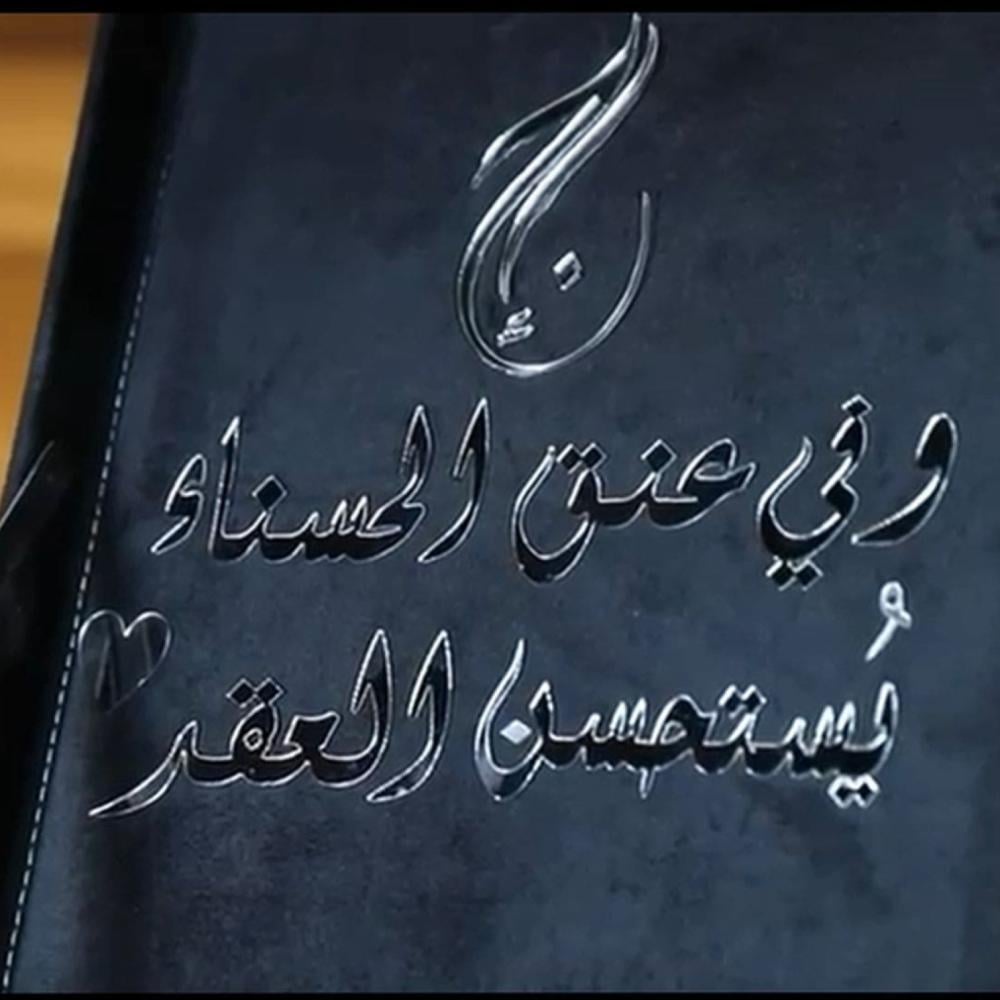 وفي عنق الحسناء
يُستحسن العقد